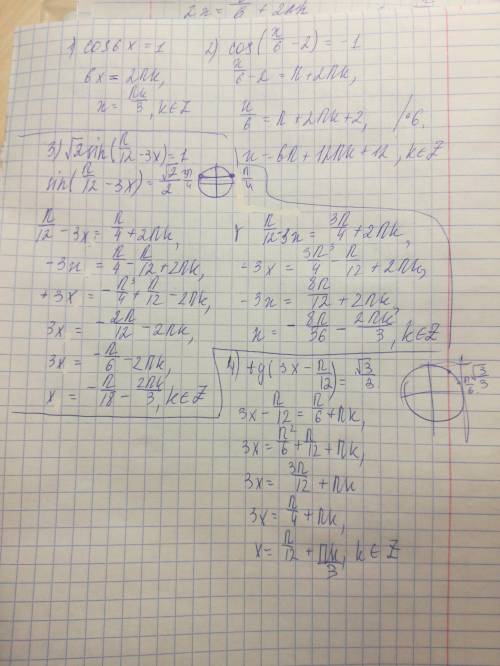 2x = π/6 + 2πk
1) cos6x = 1
6x = 2πk,
x = πk/3, k∈Z
2) cos(x/6 - 2) = -1
x/6 - 2 = π + 2πk,
x/6 = π + 2πk + 2, /·6
x = 6π + 12πk + 12, k∈Z
3) √2 sin(π/12 - 3x) = 1
sin(π/12 - 3x) = √2/2
3π/4 π/4
π/12 - 3x = π/4 + 2πk,
-3x = π/4 - π/12 + 2πk,
+3x = -π/4 + π/12 - 2πk,
3x = -2π/12 - 2πk,
3x = -π/6 - 2πk,
x = -π/18 - 2πk/3, k∈Z
π/12 - 3x = 3π/4 + 2πk,
-3x = 3π/4 - π/12 + 2πk,
-3x = 8π/12 + 2πk,
x = -8π/36 - 2πk/3, k∈Z
4) tg(3x - π/12) = √3/3
1
√3/3
π/6
3x - π/12 = π/6 + πk,
3x = π/6 + π/12 + πk,
3x = 3π/12 + πk
3x = π/4 + πk,
x = π/12 + πk/3, k∈Z